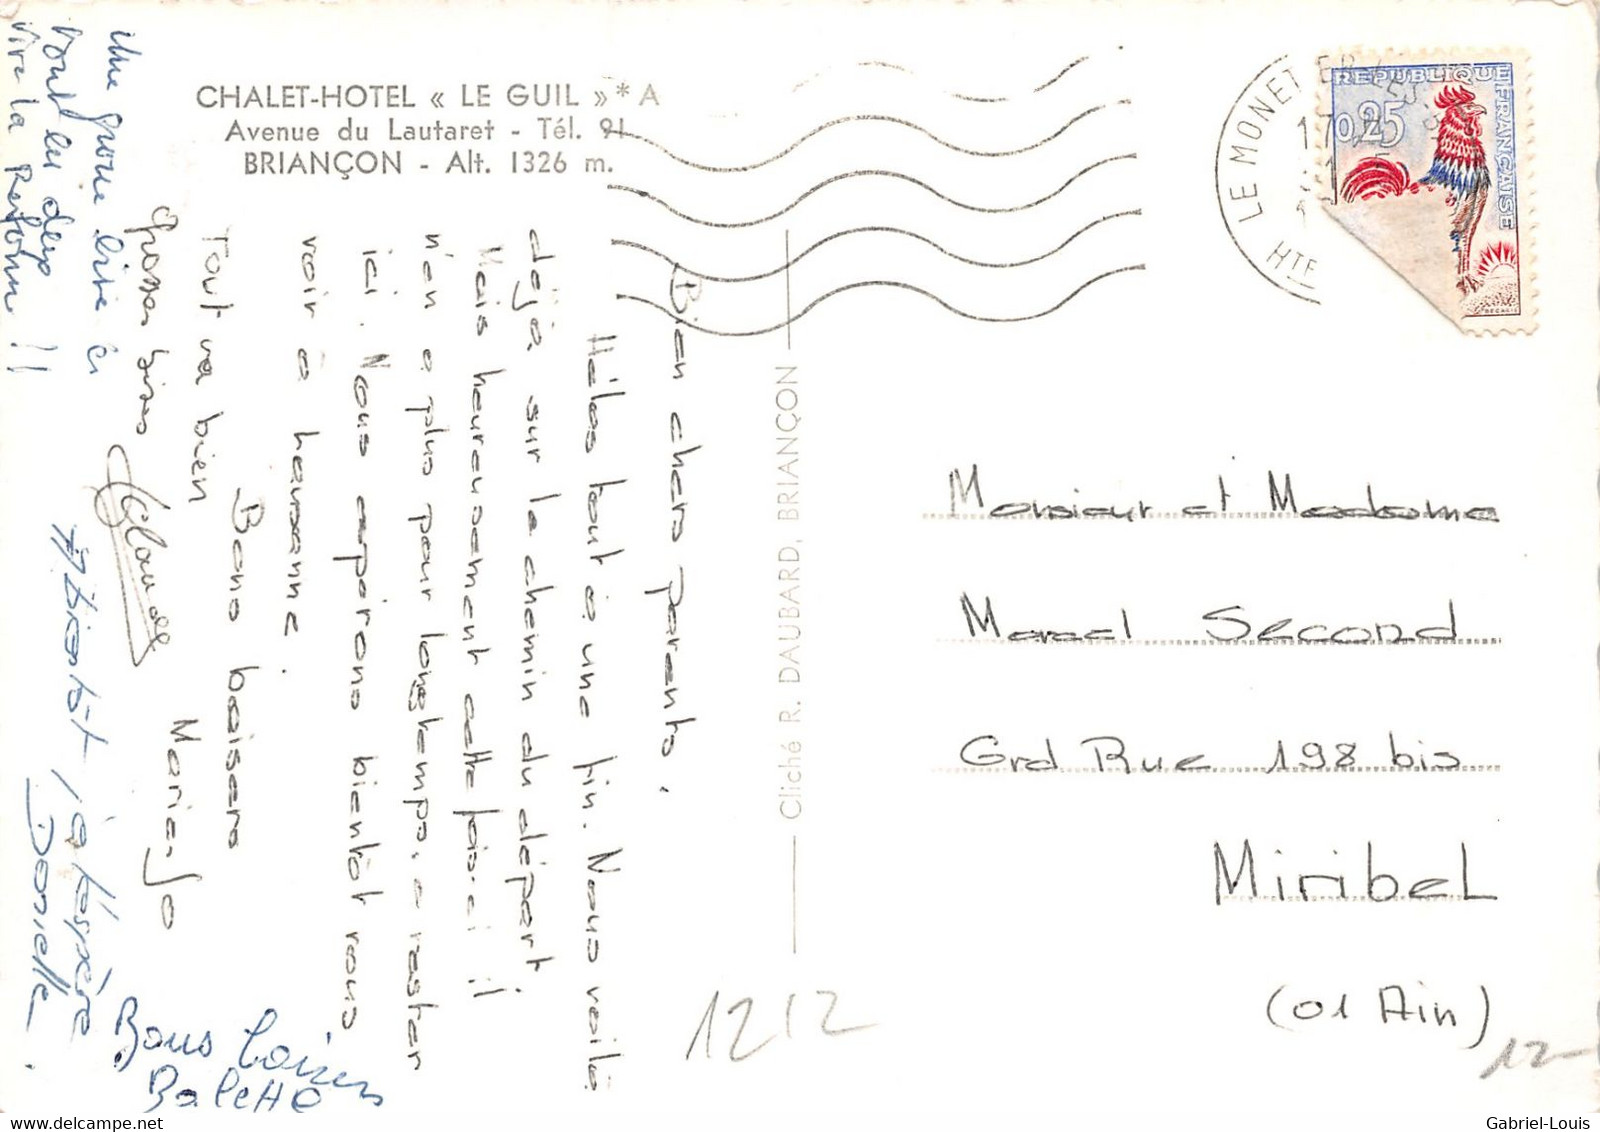 CHALET-HOTEL « LE GUIL » * A
Avenue du Lautaret - Tél. 91
BRIANÇON - Alt. 1326 m.
Bien chers parents.
Hélas tout à une fin. Nous voilà
déjà sur le chemin du départ
Mais heureusement cette fois-ci il
n'en a plus pour longtemps, a rester
ici. Nous espérons bientôt vous
voir à
Tout va bien
Bons baisers
Marie-Jo
Grosses bises
Claude
Une grosse bise à
vous les deux
Vive la !!
A Bientôt j'espère
Danielle.
Bons baisers
Cliché R. DAUBARD, BRIANÇON
LE MONETIER LES B
17
HTE
REPUBLIQUE FRANÇAISE
0,25
DECARIS
Monsieur et Madame
Marcel Second
Grd Rue 198 bis
Miribel
(01 Ain)
1212
12-
Gabriel-Louis